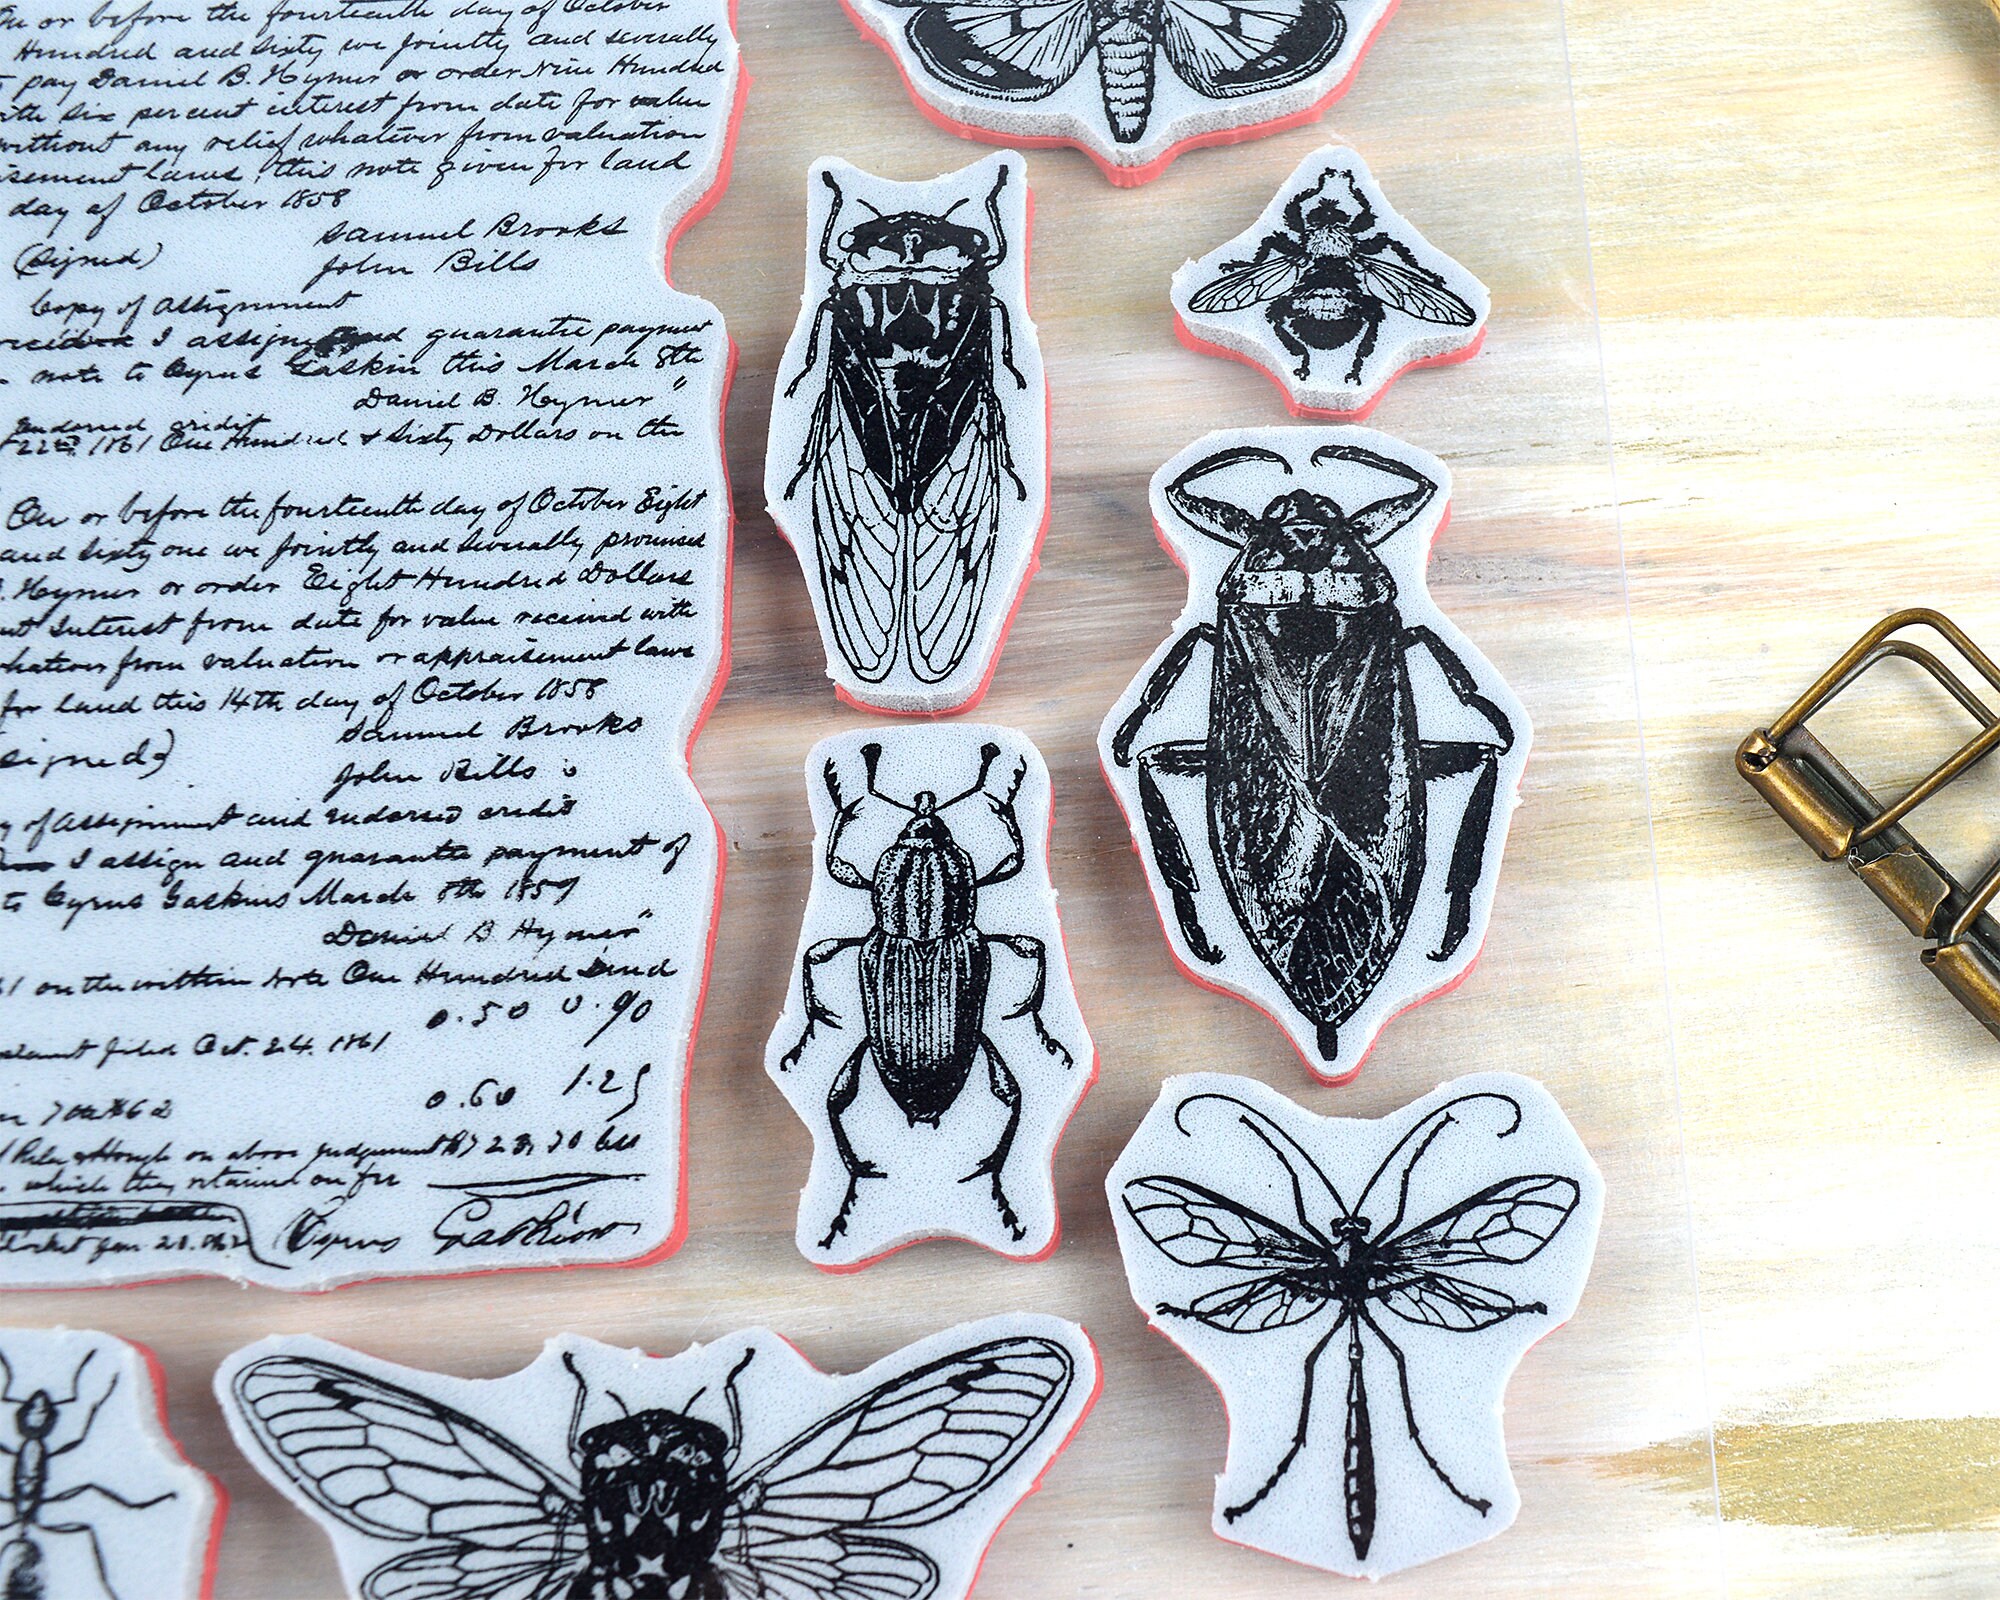 On or before the fourteenth day of October
Hundred and Sixty we jointly and severally
pay Daniel B. Hymer or order Nine Hundred
with six percent interest from date for value
without any relief whatever from valuation
isement laws, this note given for land
day of October 1858
(Signed) Samuel Brooks
John Bills
Copy of Assignment
I assign and guarantie payment
note to Cyrus Gaskin this March 8th
Daniel B. Hymer"
Endorsed credit
22nd 1861 One Hundred & Sixty Dollars on the
On or before the fourteenth day of October Eight
and Sixty one we jointly and Severally promises
Hymer or order Eight Hundred Dollars
Interest from date for value received with
whatever from valuation or appraisement laws
for land this 14th day of October 1858
Samuel Brooks
signed)
John Bills
of Assignment and endorsed credit
I assign and guarantie payment of
to Cyrus Gaskins March 8th 1859
Daniel B Hymer"
61 on the within Note One Hundred
0.50 0.90
filed Oct. 24. 1861
0.60 1.25
on above judgement
which they retain on for
Cyrus Gaskins